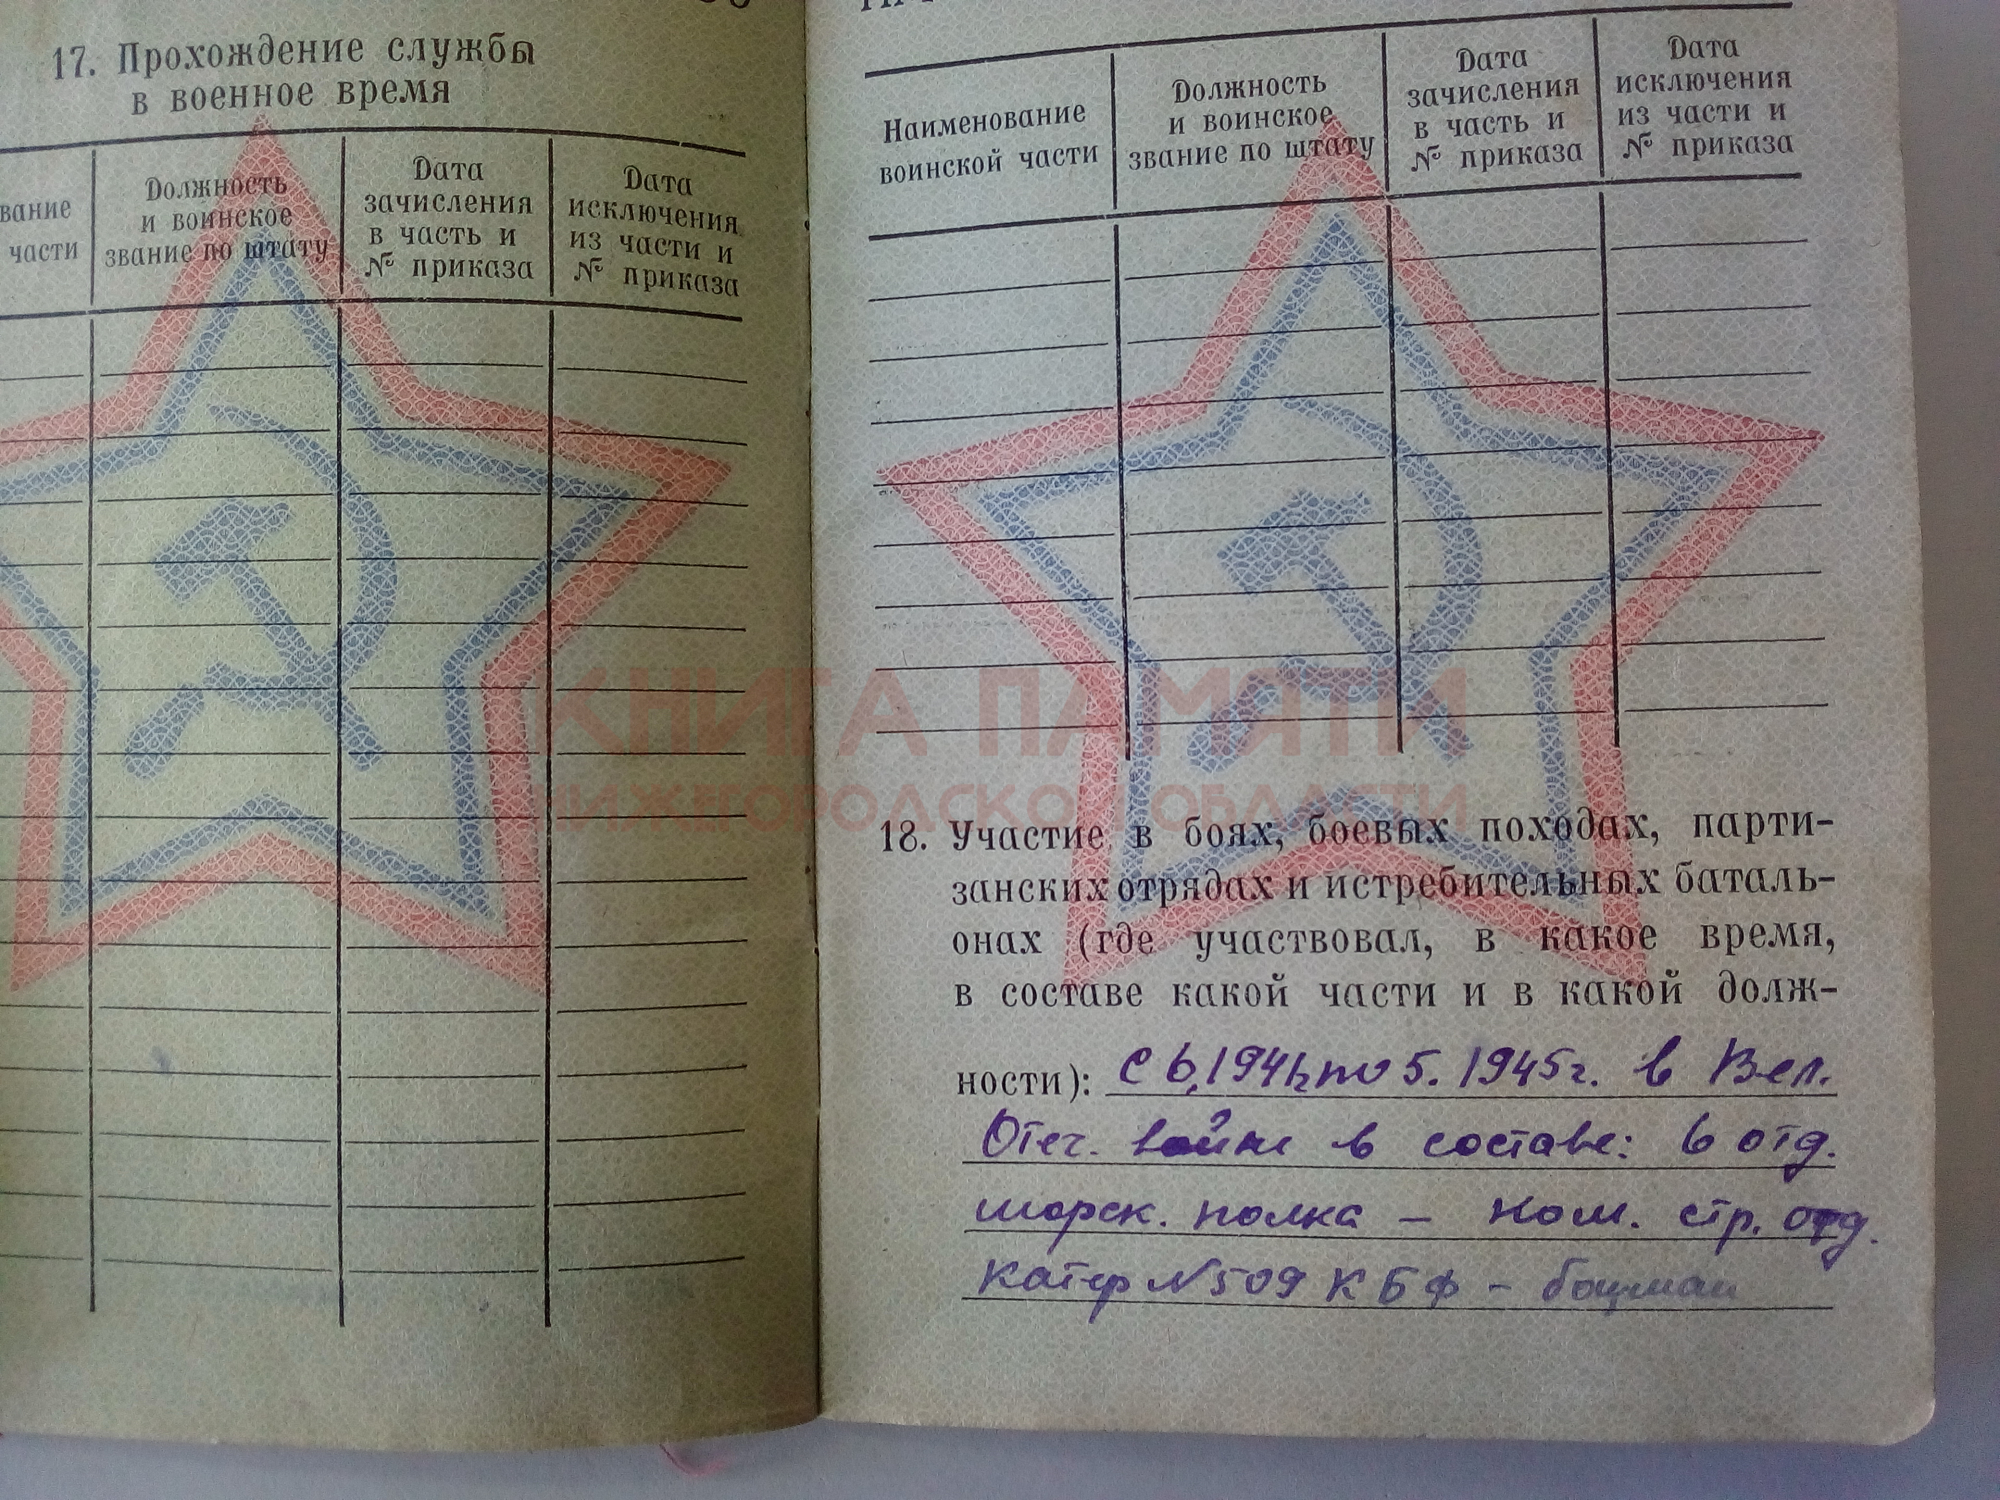 17. Прохождение службы
в военное время
вание
части
Должность
и воинское
звание по штату
Дата
зачисления
в часть и
№ приказа
Дата
исключения
из части и
№ приказа
Наименование
воинской части
Должность
и воинское
звание по штату
Дата
зачисления
в часть и
№ приказа
Дата
исключения
из части и
№ приказа
КНИГА ПАМЯТИ
НИЖЕГОРОДСКОЙ ОБЛАСТИ
18. Участие в боях, боевых походах, парти-
занских отрядах и истребительных баталь-
онах (где участвовал, в какое время,
в составе какой части и в какой долж-
ности): С 6.1941г по 5. 1945г. в Вел.
Отеч. войне в составе: 6 отд.
морск. полка – Ком. стр. отд.
Катер №509 КБФ – боцман